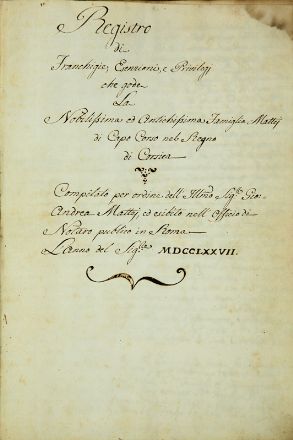 Registro
di
Franchigie, Esenzioni, e Privilegj
che gode
La
Nobilissima ed Antichissima Famiglia Mattej
di Capo Corso nel Regno
di Corsica
Compilato per ordine dell' Illmo Sigr Gio:
Andrea Mattej, ed esibito nell' Officio di
Notaro publico in Roma
L'anno del Sigre MDCCLXXVII.